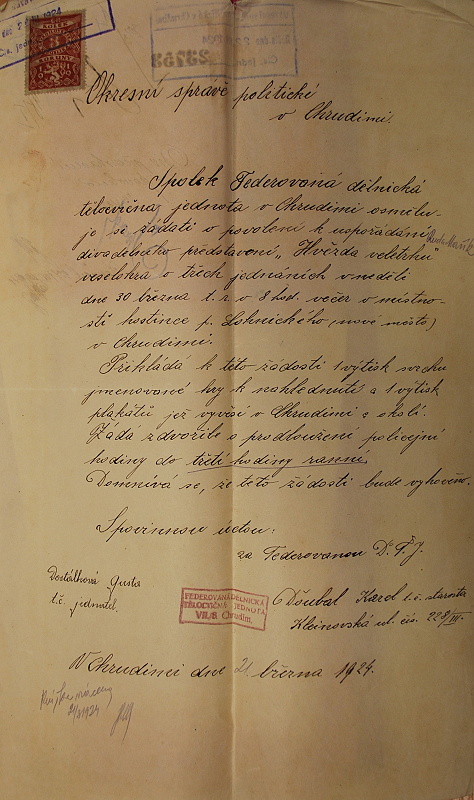 KOLEK
5
KORUN
23753
Okresní správě politické
v Chrudimi.
Spolek Federovaná dělnická
tělocvičná jednota v Chrudimi osmělu-
je se žádati o povolení k uspořádání
divadelního představení „Hvězda veletrhu"
veselohra o třech jednáních v neděli
dne 30 března t. r. v 8 hod. večer v místno-
sti hostince p. Lohnického (nové město)
v Chrudimi.
Přikládá k této žádosti 1 výtisk svrchu
jmenované hry k nahlednutí a 1 výtisk
plakátů jež vyvěsí v Chrudimi a okolí.
Žádá zdvořile o prodloužení policejní
hodiny do třetí hodiny ranní.
Domnívá se, že této žádosti bude vyhověno.
S povinnou úctou:
za Federovanou D. T. J.
Dostálková Gusta
t. č. jednatel.
FEDEROVANÁ DĚLNICKÁ
TĚLOCVIČNÁ JEDNOTA
VII./5 Chrudim.
Doubal Karel t. č. starosta
Kleinovská ul. čís. 228/III.
V Chrudimi dne 21. března 1924.